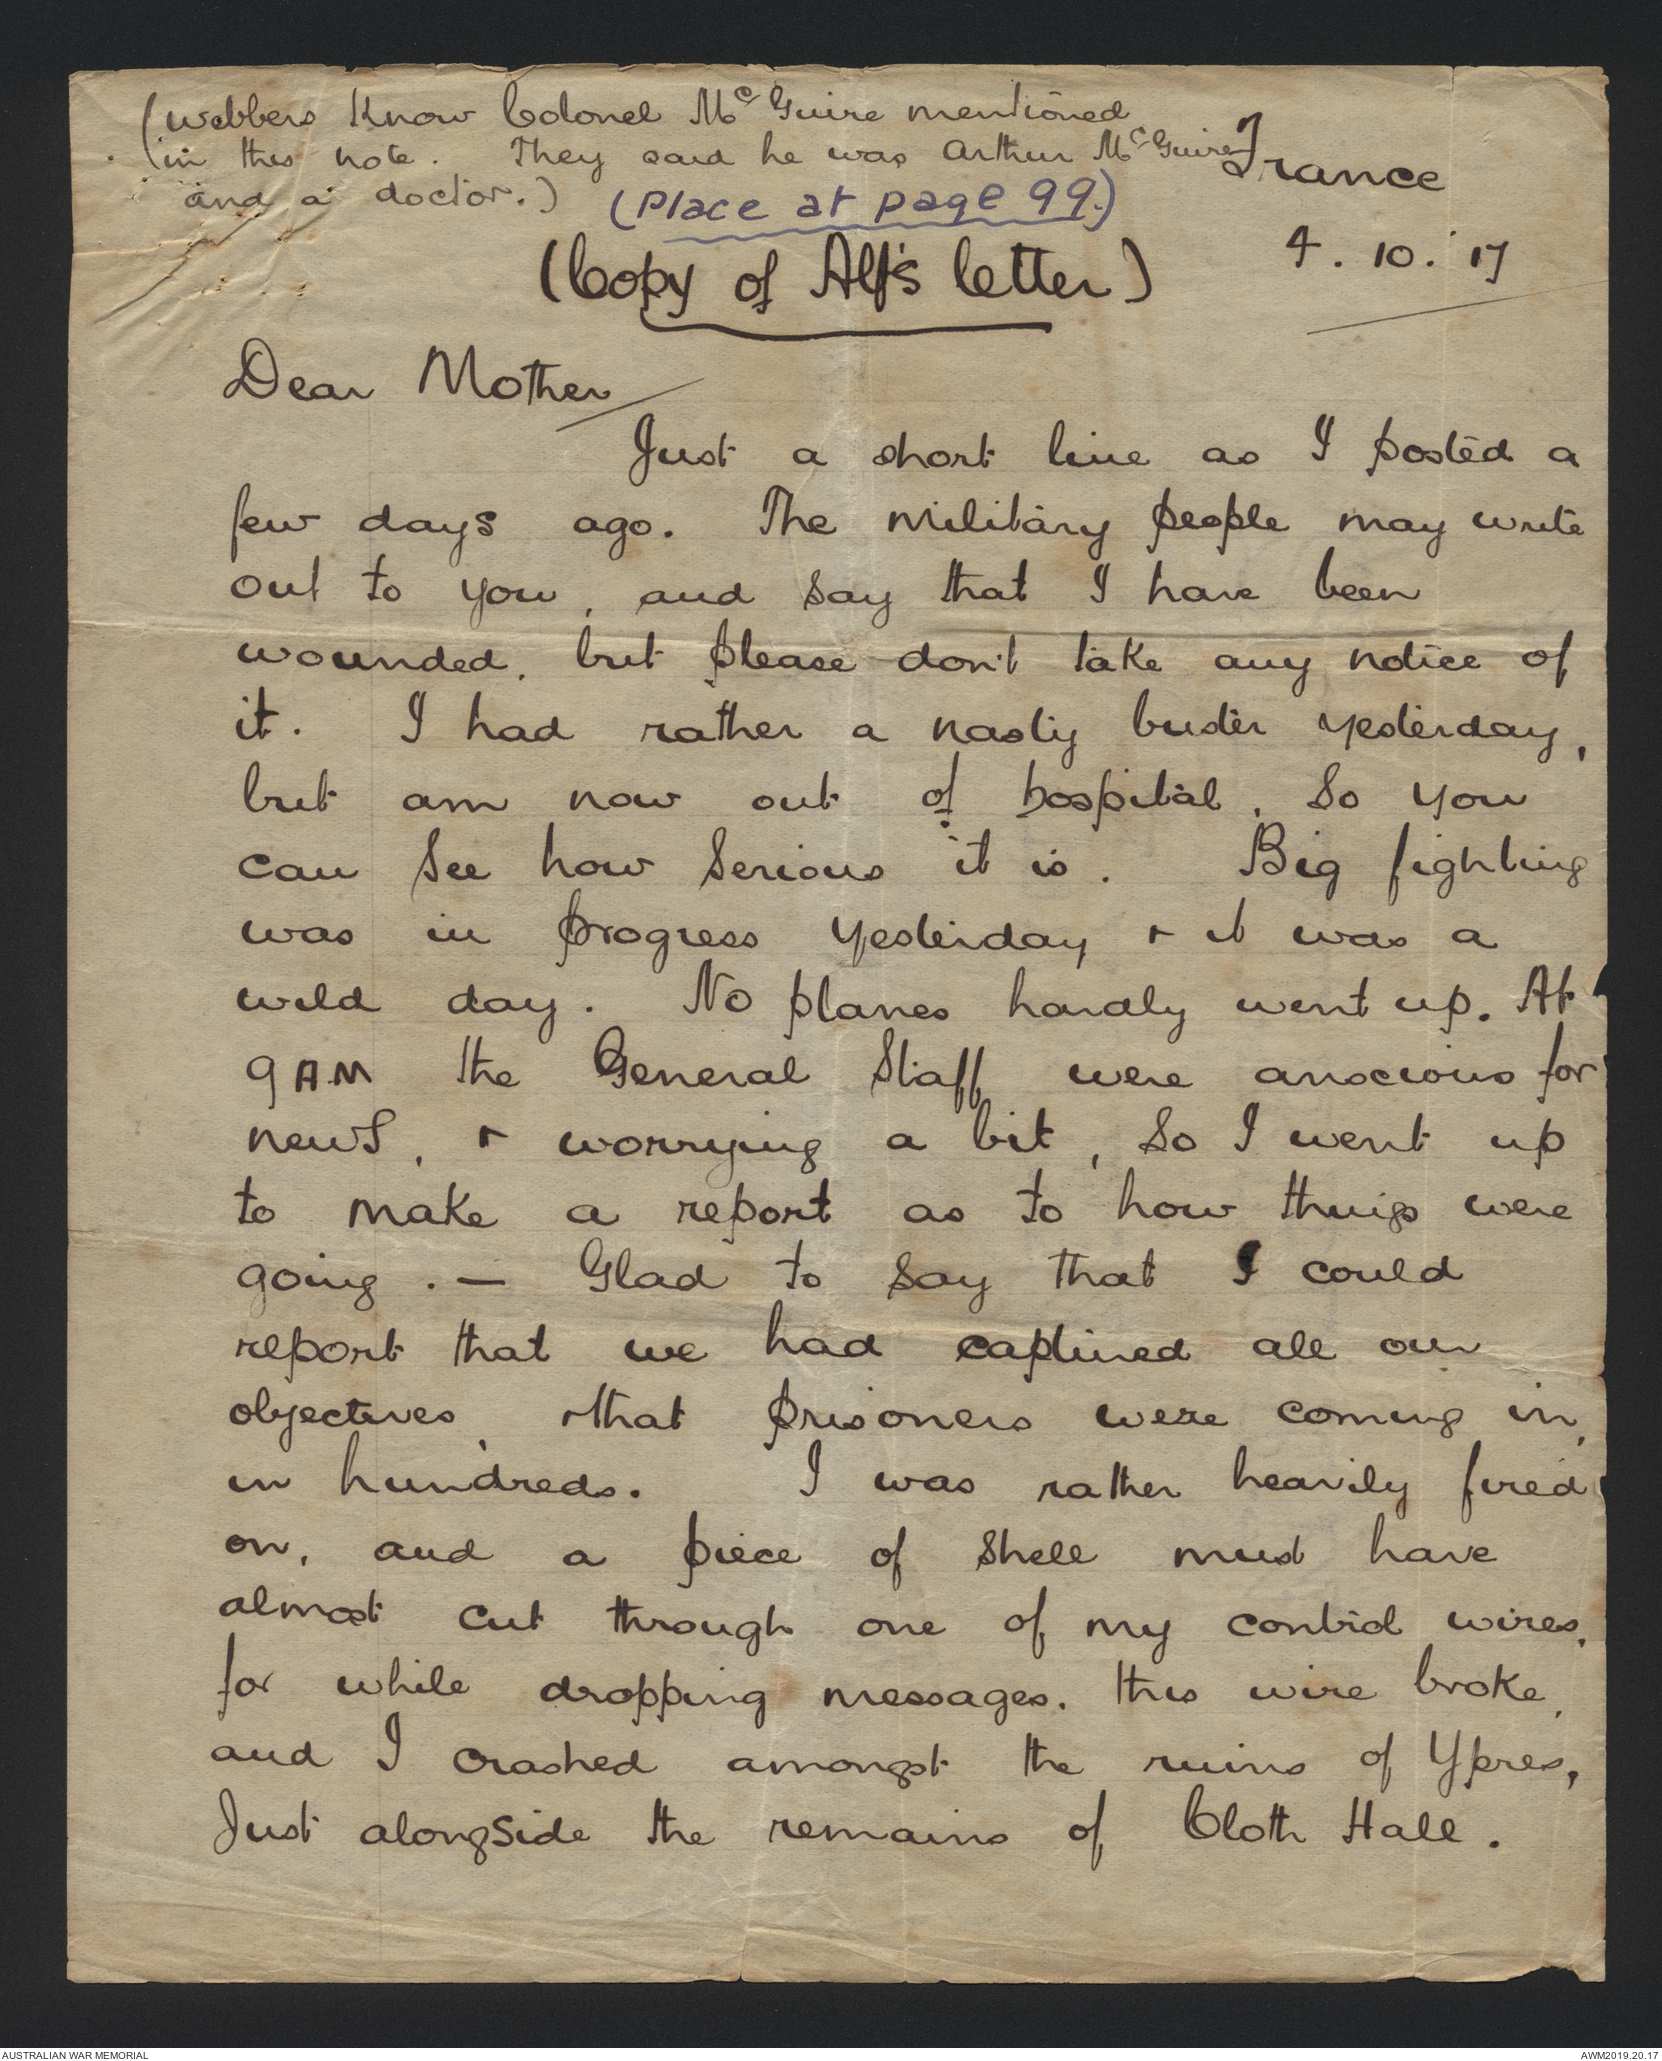 (Webbers know Colonel McGuire mentioned
(in this note. They said he was Arthur McGuire
and a doctor.)
(Place at page 99.)
France
(Copy of Alf's letter)
4. 10. '17
Dear Mother
Just a short line as I posted a
few days ago. The military people may write
out to you, and say that I have been
wounded, but please don't take any notice of
it. I had rather a nasty buster yesterday,
but am now out of hospital, so you
can see how serious it is. Big fighting
was in progress yesterday + it was a
wild day. No planes hardly went up. At
9 AM the General Staff were anscious for
news, + worrying a bit, so I went up
to make a report as to how things were
going. — Glad to say that I could
report that we had captured all our
objectives, + that prisoners were coming in,
in hundreds. I was rather heavily fired
on, and a piece of shell must have
almost cut through one of my control wires,
for while dropping messages. this wire broke,
and I crashed amongst the ruins of Ypres,
Just alongside the remains of Cloth Hall.
AUSTRALIAN WAR MEMORIAL
AWM2019.20.17